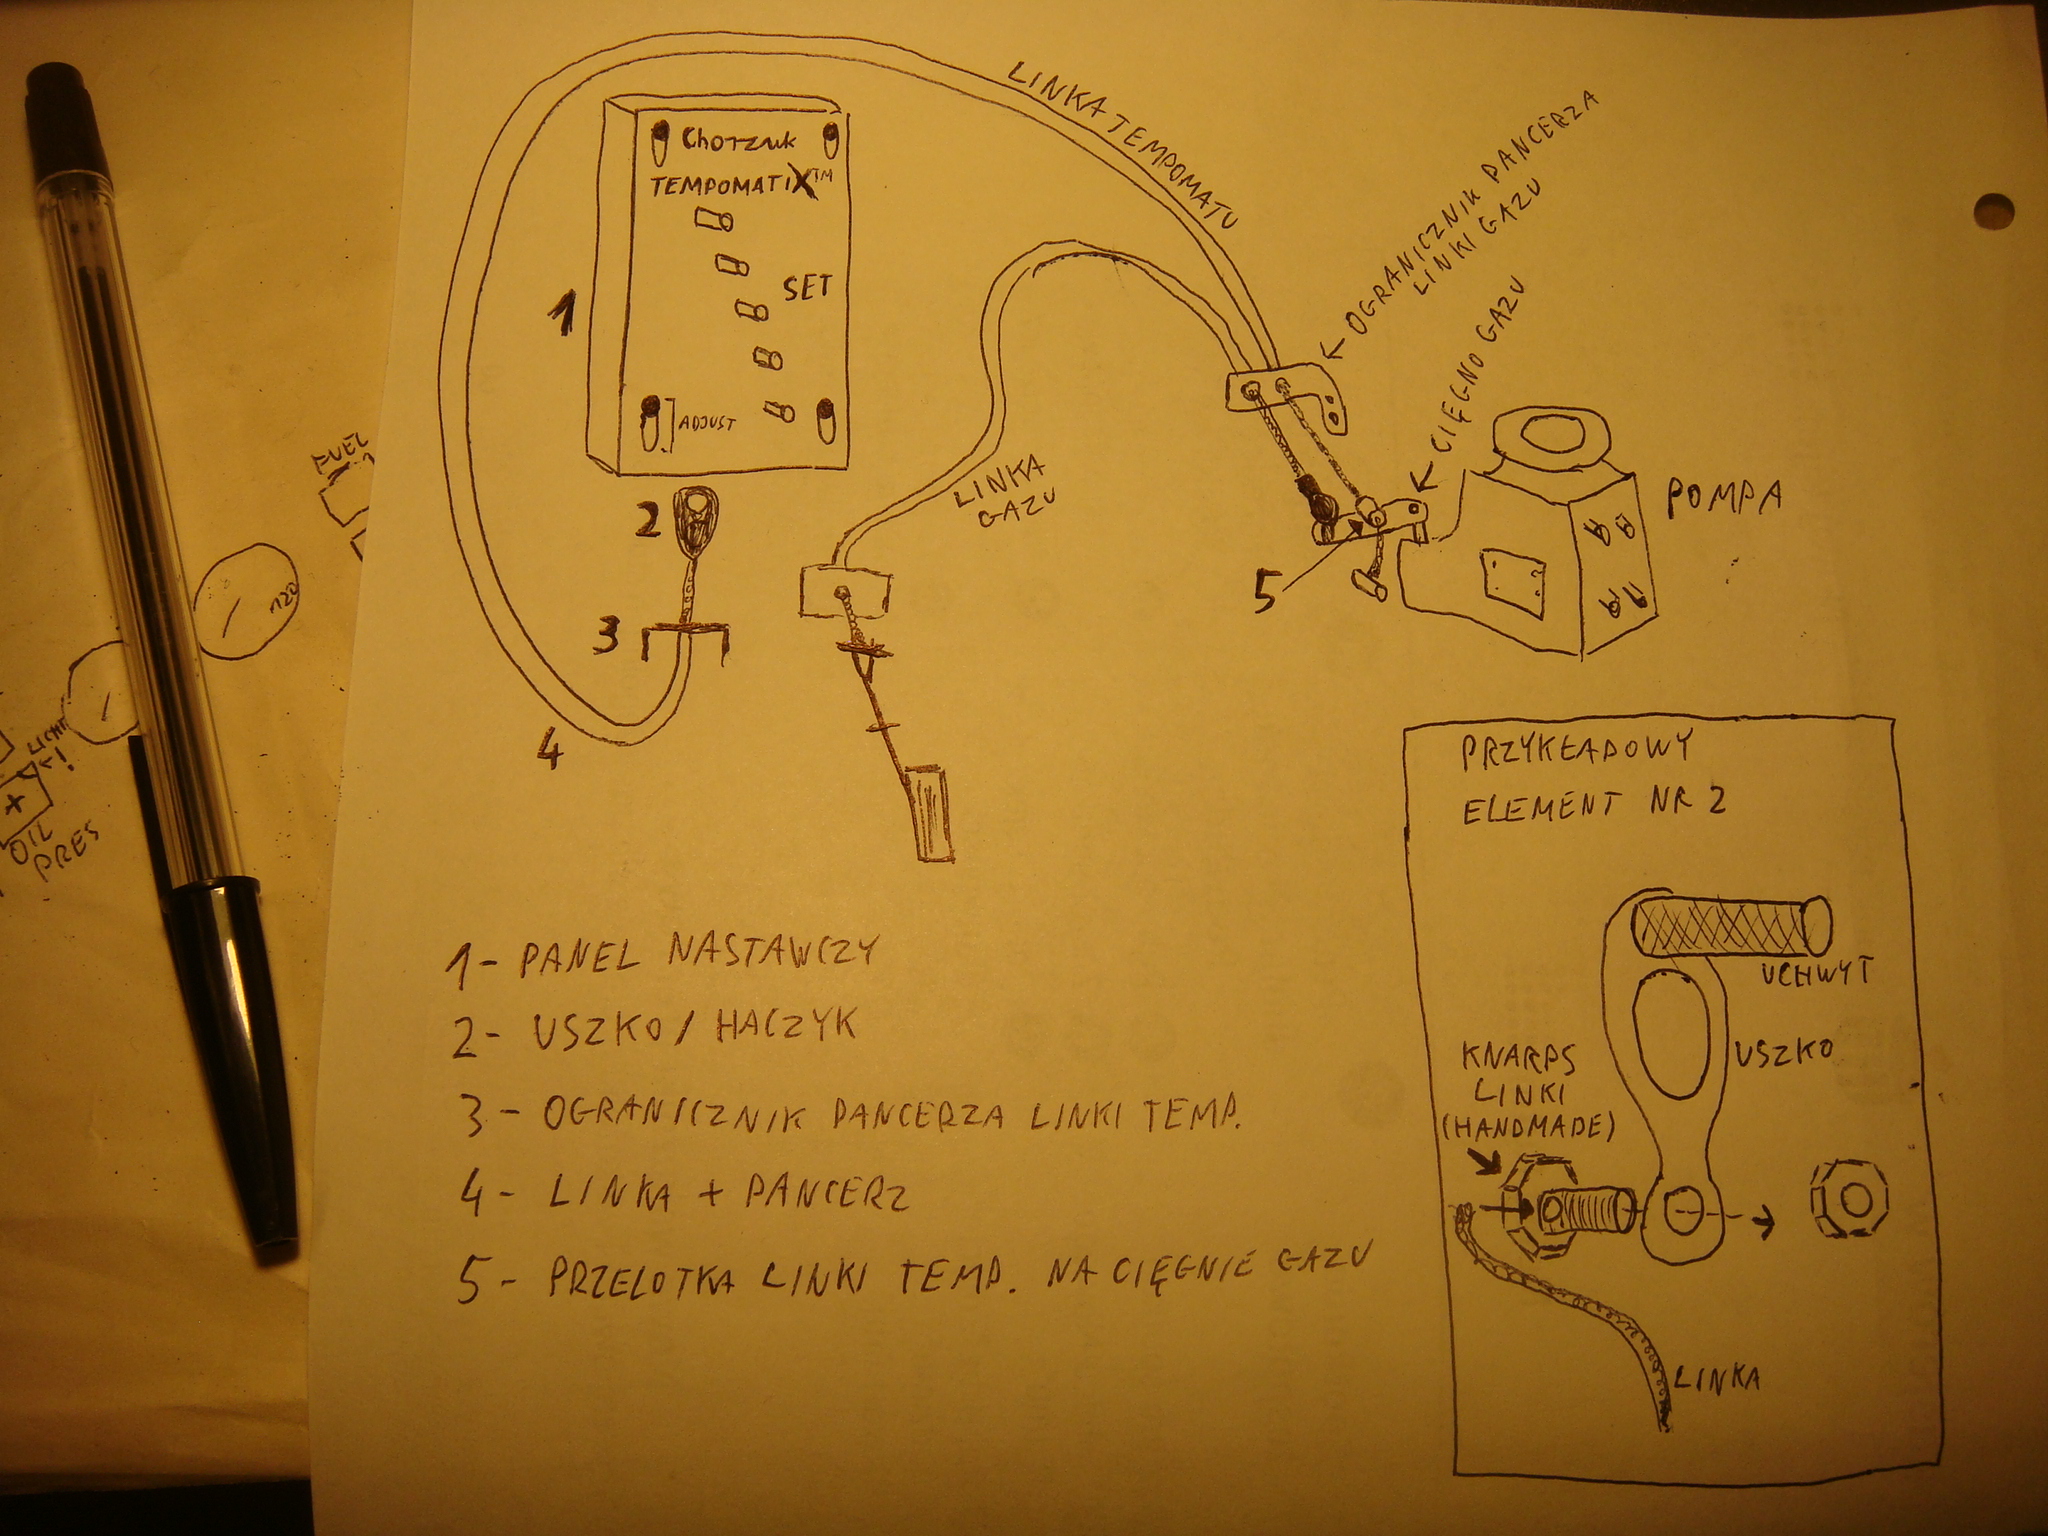 Chorzuk
TEMPOMATIX™
SET
ADJUST
1
2
3
4
LINKA TEMPOMATU
OGRANICZNIK PANCERZA
LINKI GAZU
CIĘGNO GAZU
LINKA
GAZU
5
POMPA
FUEL
120
LICHT
!
+
OIL
PRES
1 - PANEL NASTAWCZY
2 - USZKO / HACZYK
3 - OGRANICZNIK PANCERZA LINKI TEMP.
4 - LINKA + PANCERZ
5 - PRZELOTKA LINKI TEMP. NA CIĘGNIE GAZU
PRZYKŁADOWY
ELEMENT NR 2
UCHWYT
USZKO
KNARPS
LINKI
(HANDMADE)
LINKA